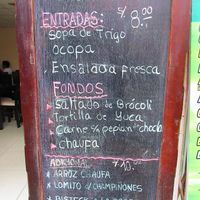 ENTRADAS: S/. 8.00
Sopa de Trigo
Ocopa
Ensalada fresca
FONDOS
Saltado de Brócoli
Tortilla de Yuca
Carne c/ pepian de choclo
chaufa
ADICIONAL 10.00
* ARROZ CHAUFA
* LOMITO c/ CHAMPIÑONES